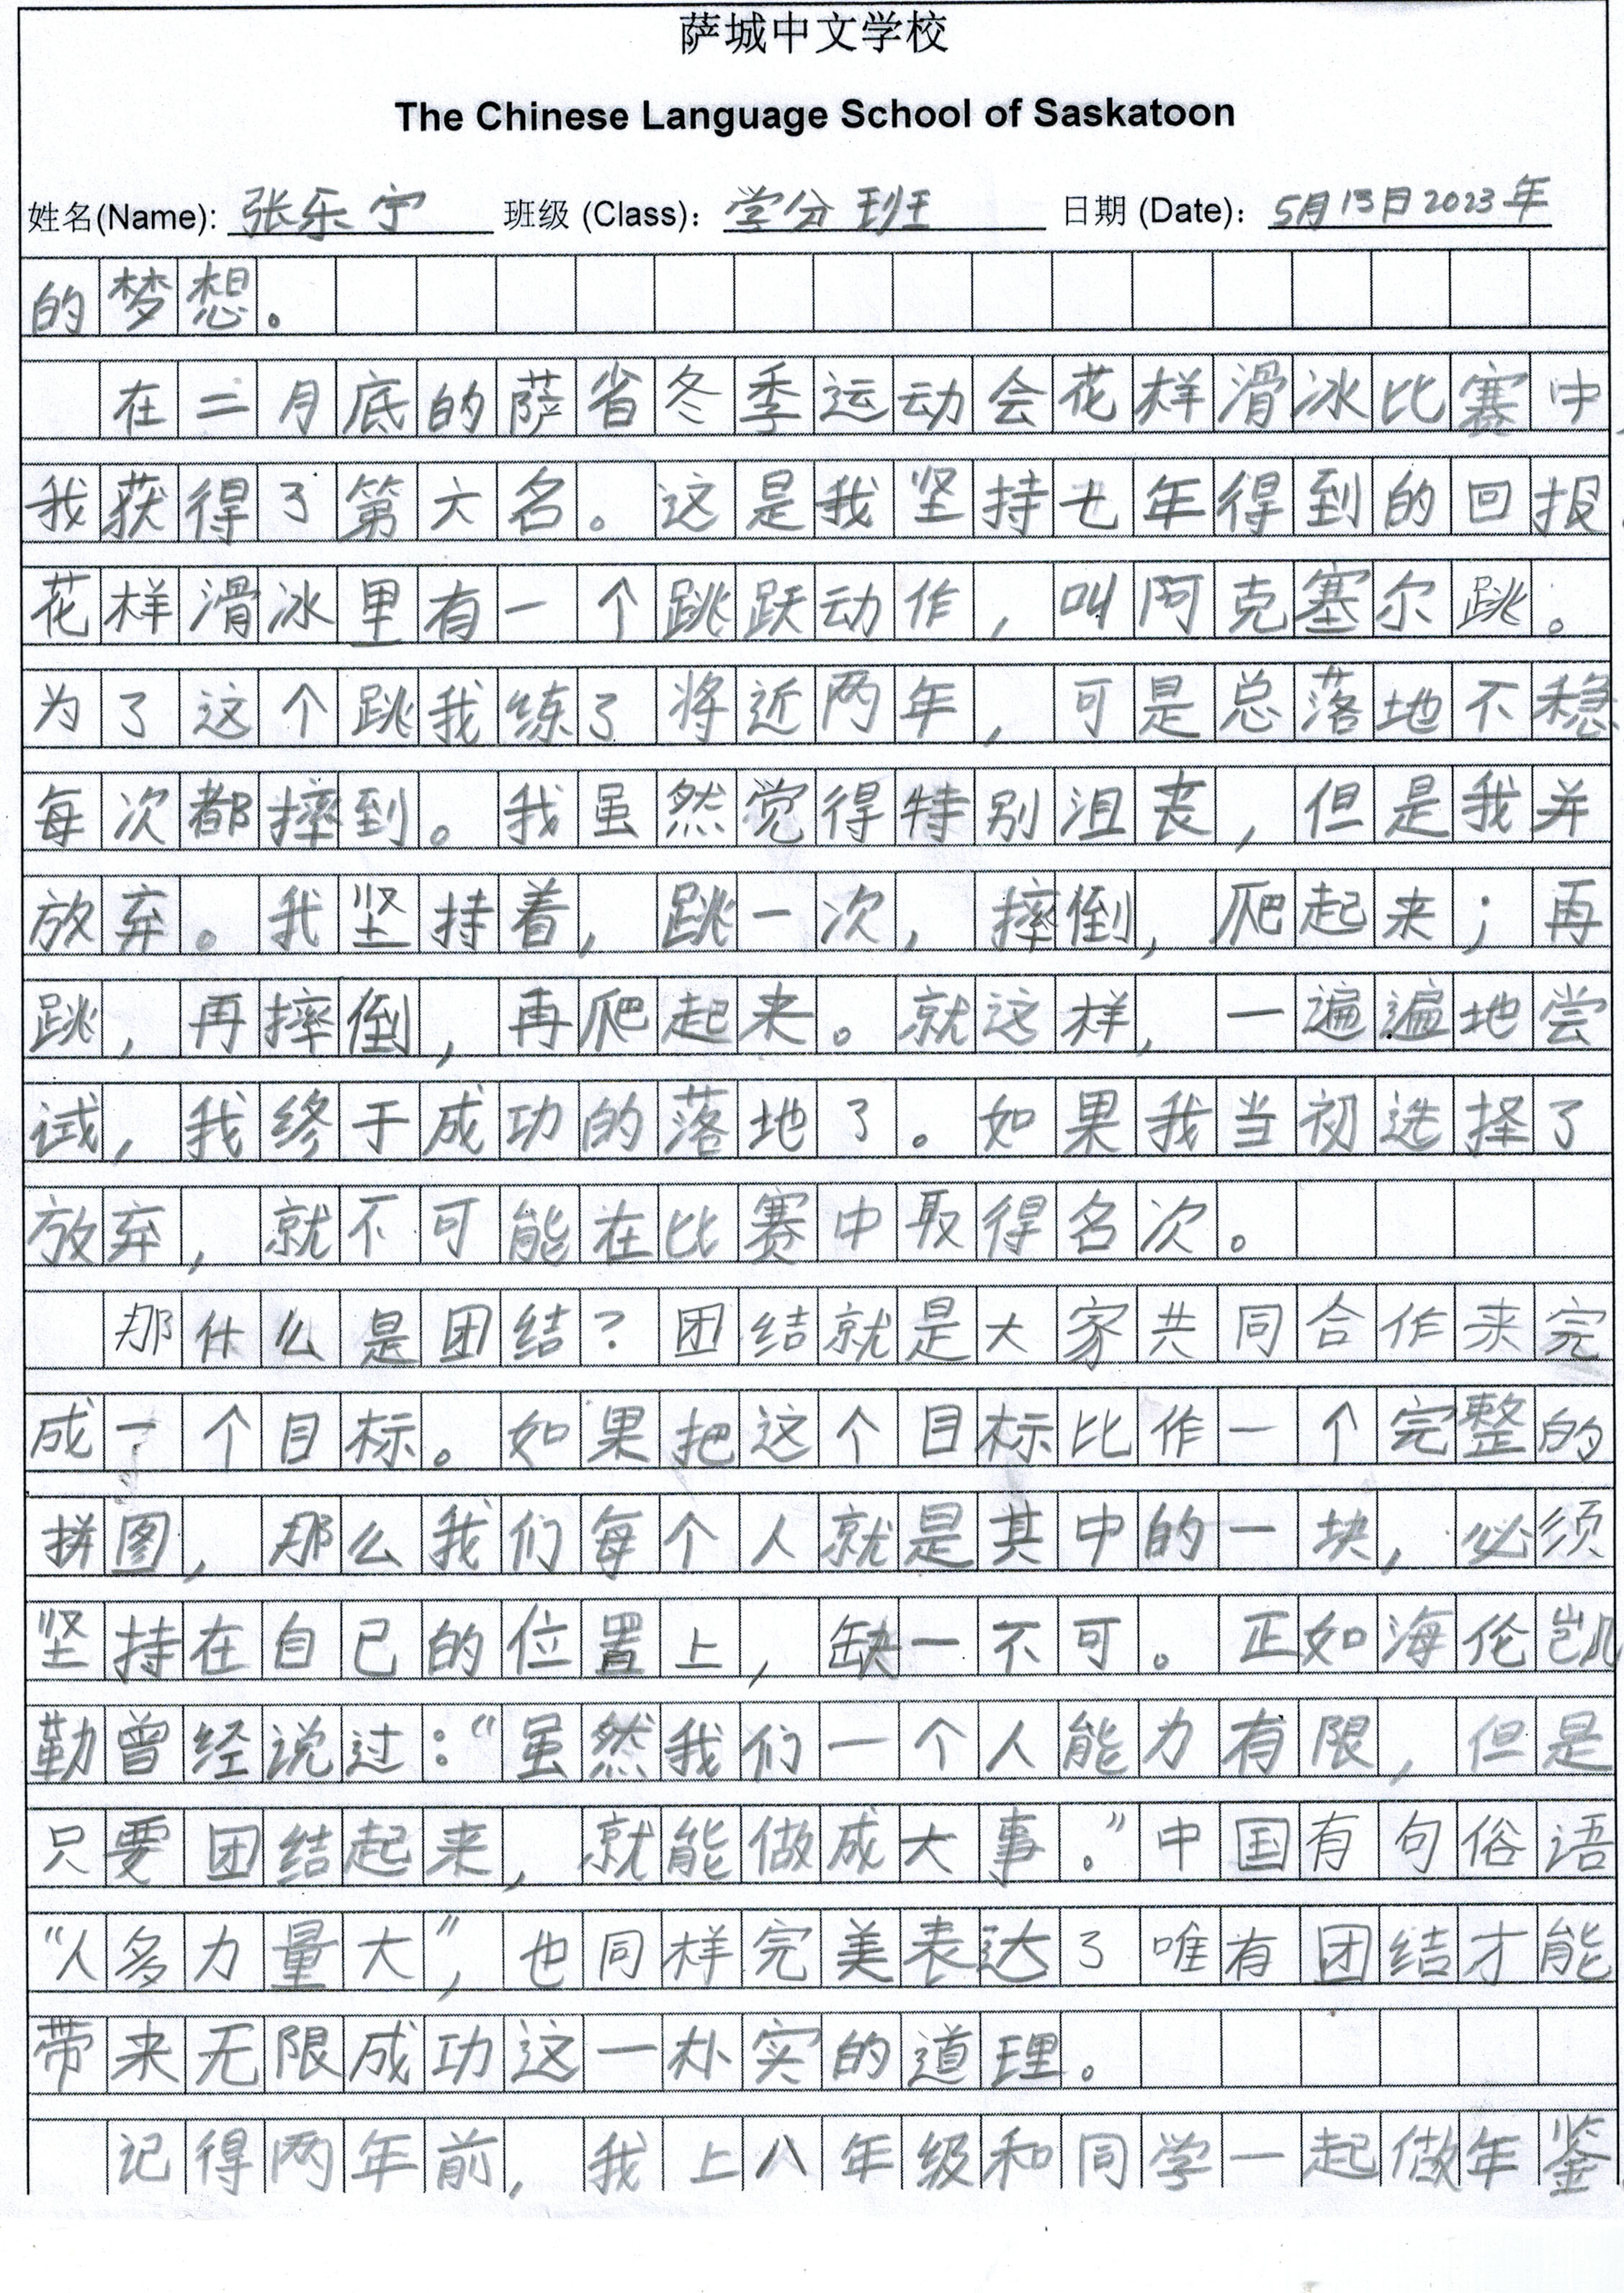 萨城中文学校
The Chinese Language School of Saskatoon
姓名(Name): 张乐宁 班级 (Class): 学分班 日期 (Date): 5月13日2023年
的梦想。
在二月底的萨省冬季运动会花样滑冰比赛中,
我获得了第六名。这是我坚持七年得到的回报.
花样滑冰里有一个跳跃动作,叫阿克塞尔跳。
为了这个跳我练了将近两年,可是总落地不稳
每次都摔到。我虽然觉得特别沮丧,但是我并
放弃。我坚持着,跳一次,摔倒,爬起来;再
跳,再摔倒,再爬起来。就这样,一遍遍地尝
试,我终于成功的落地了。如果我当初选择了
放弃,就不可能在比赛中取得名次。
那什么是团结?团结就是大家共同合作来完
成一个目标。如果把这个目标比作一个完整的
拼图,那么我们每个人就是其中的一块,必须
坚持在自己的位置上,缺一不可。正如海伦凯
勒曾经说过:“虽然我们一个人能力有限,但是
只要团结起来,就能做成大事。”中国有句俗语
“人多力量大”,也同样完美表达了唯有团结才能
带来无限成功这一朴实的道理。
记得两年前,我上八年级和同学一起做年鉴